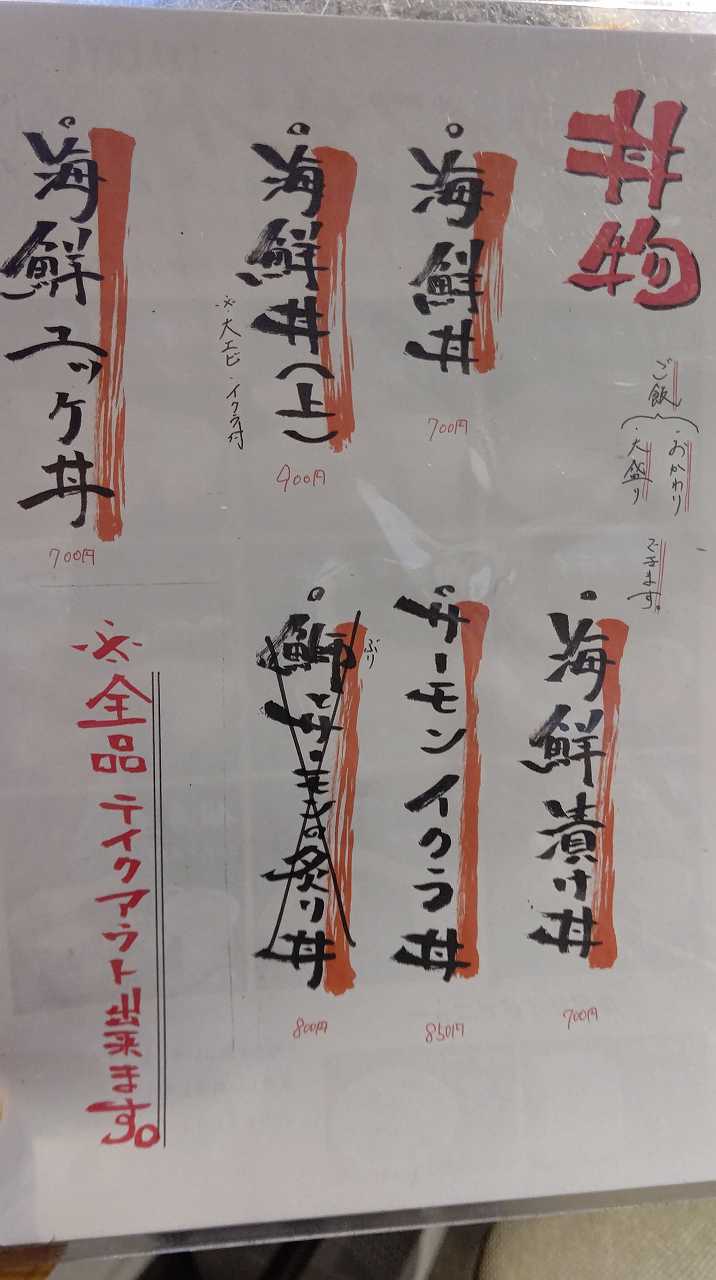 丼物
ご飯
おかわり
大盛り
できます。
海鮮丼
700円
海鮮丼(上)
※大エビ・イクラ付
900円
海鮮ユッケ丼
700円
海鮮漬け丼
700円
サーモンイクラ丼
850円
鰤とサーモンの炙り丼
ぶり
800円
※全品テイクアウト出来ます。